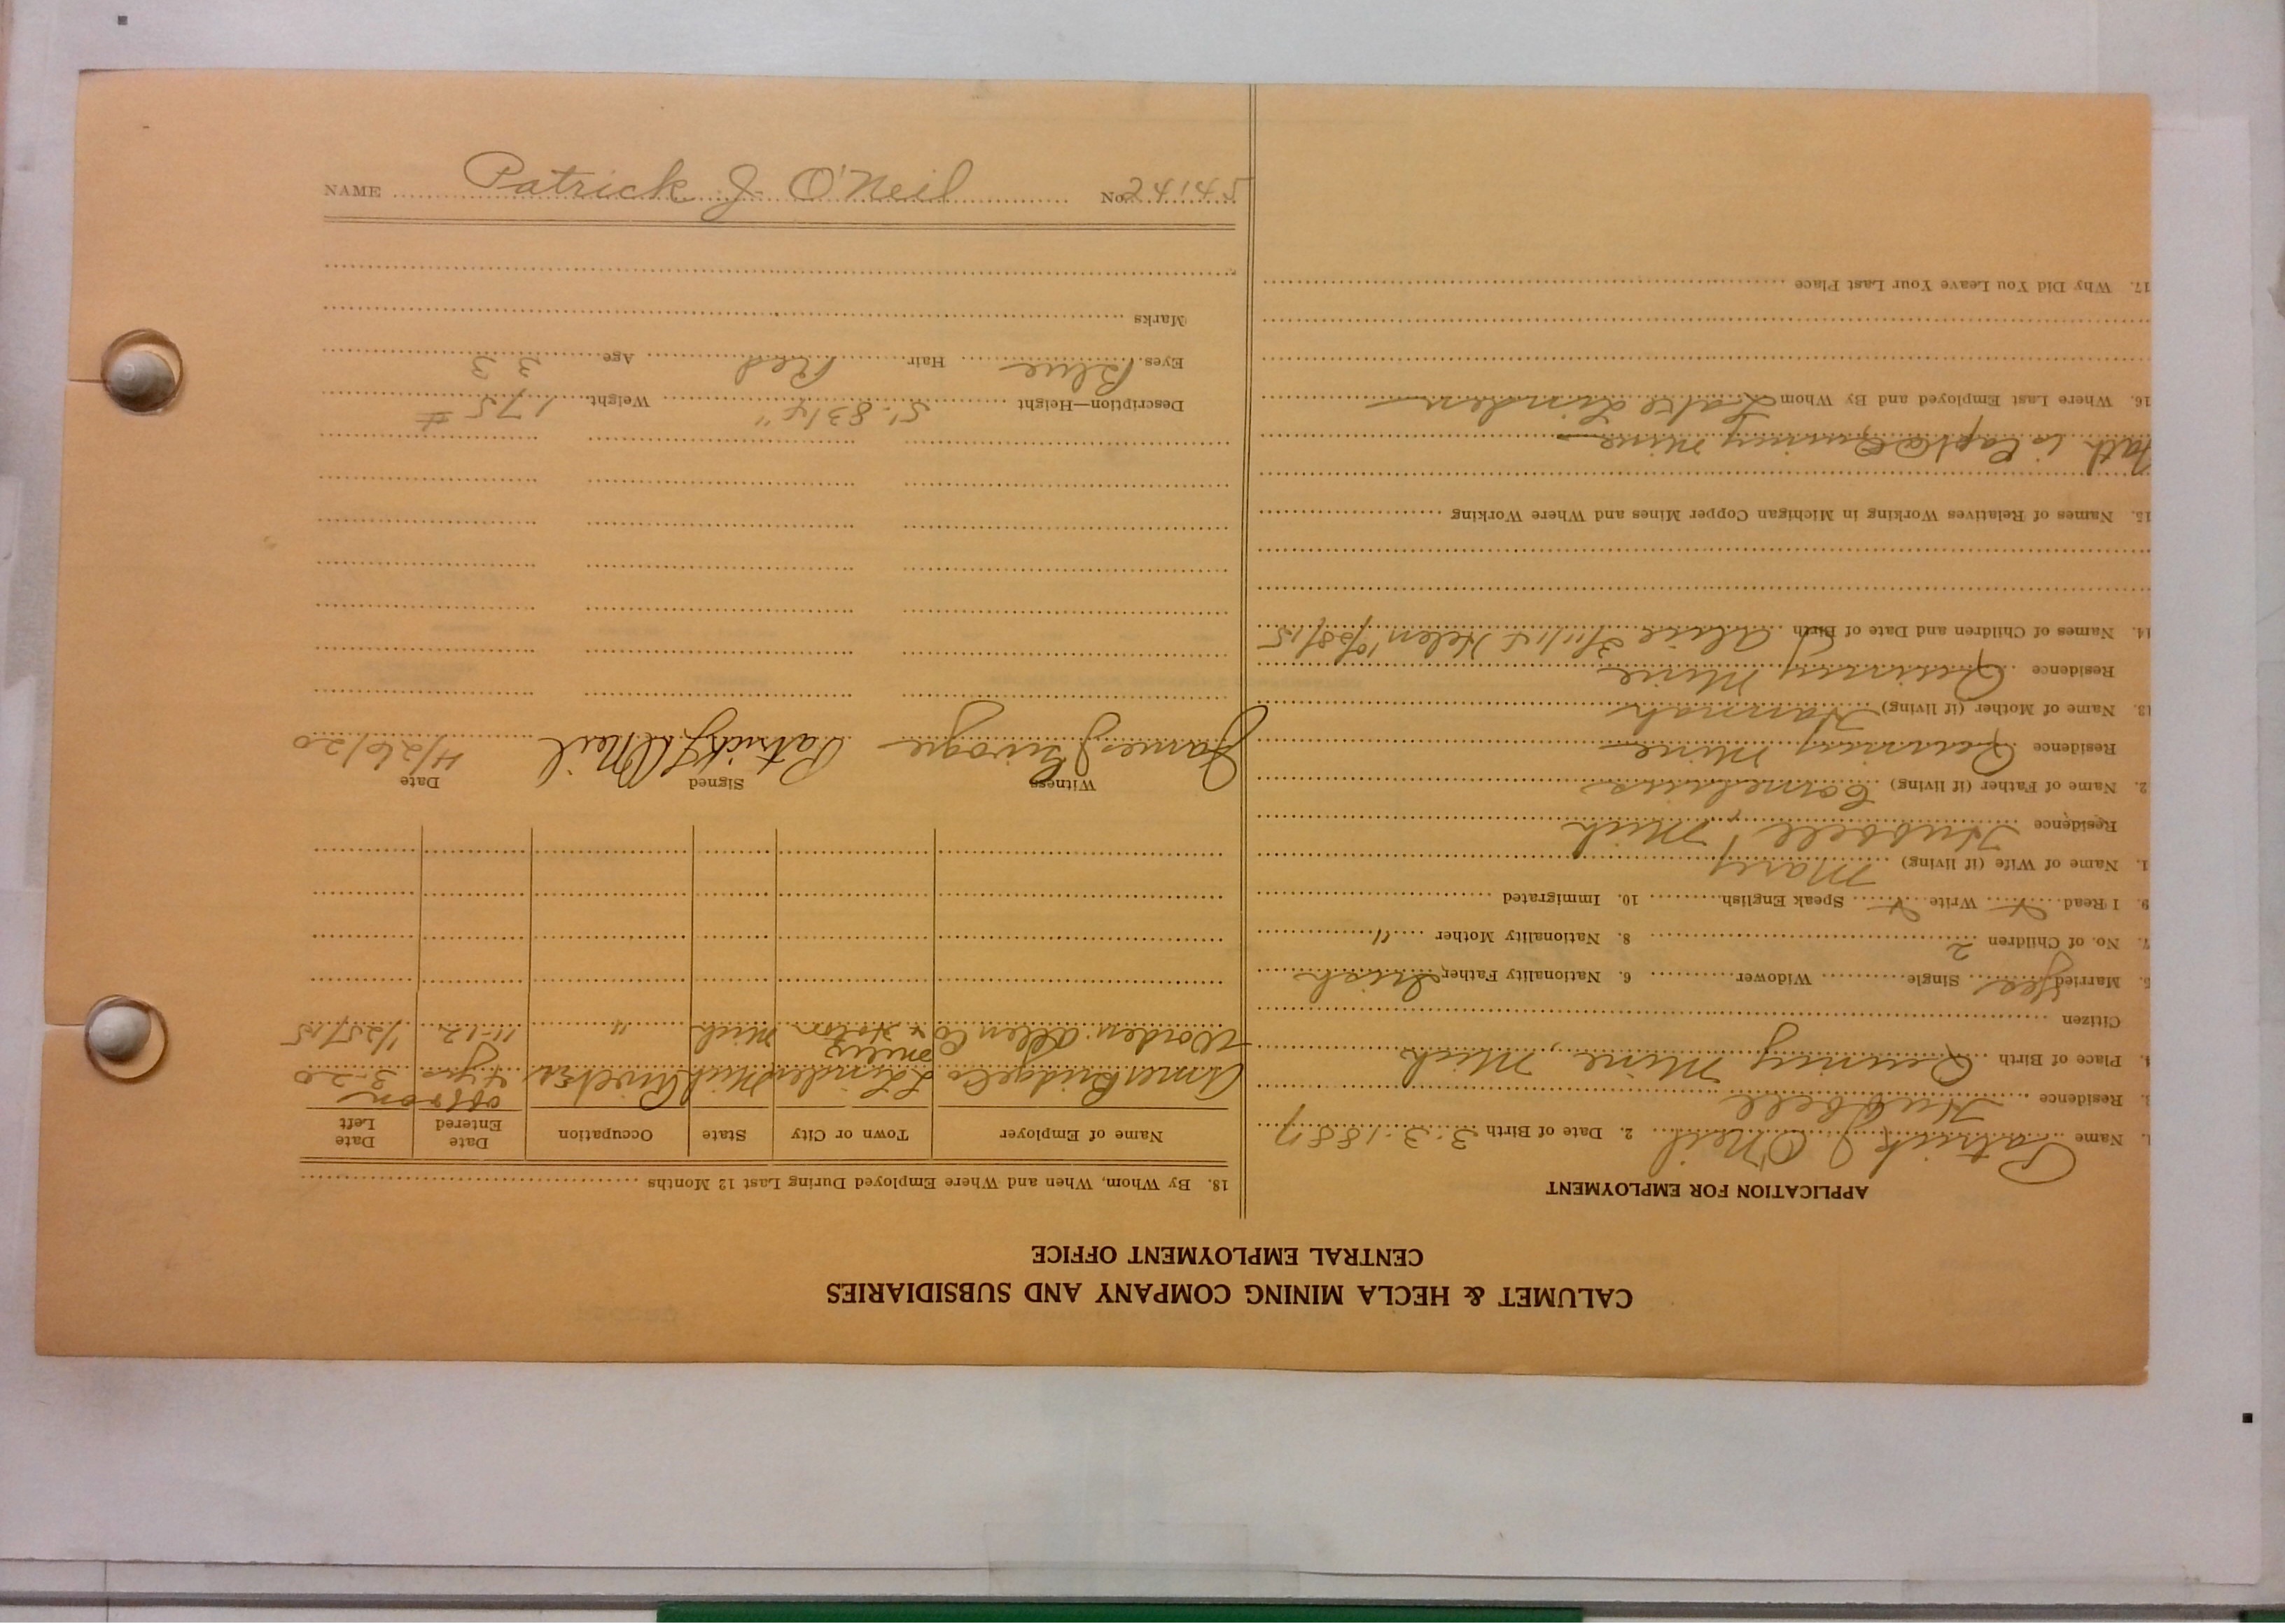 CALUMET & HECLA MINING COMPANY AND SUBSIDIARIES
CENTRAL EMPLOYMENT OFFICE
APPLICATION FOR EMPLOYMENT
1. Name Patrick J O'Neil 2. Date of Birth 3-3-1887
3. Residence Hubbell
4. Place of Birth Quincy Mine, Mich
Citizen
5. Married Yes Single Widower 6. Nationality Father Irish
7. No. of Children 2 8. Nationality Mother "
9. I Read x Write x Speak English 10. Immigrated
1. Name of Wife (if living) Mary
Residence Hubbell, Mich
2. Name of Father (if living) Cornelius
Residence Quincy Mine
13. Name of Mother (if living) Hannah
Residence Quincy Mine
14. Names of Children and Date of Birth Alice 3/11/14 Helen 10/28/15
15. Names of Relatives Working in Michigan Copper Mines and Where Working
Fath is Capt @ Quincy Mine
16. Where Last Employed and By Whom Lake Linden
17. Why Did You Leave Your Last Place
18. By Whom, When and Where Employed During Last 12 Months
Name of Employer Town or City State Occupation Date Entered Date Left
off & on
Amer Bridge Co L Linden Mich Riveter 4 yrs 3-20
Mills
Worden Allen Co Mich " 11-12 1/25/15
Witness Signed Date
James Patrick J O'Neil 4/26/20
Description—Height 5' 8 3/4" Weight 175 #
Eyes Blue Hair Red Age 33
Marks
NAME Patrick J O'Neil No. 24145